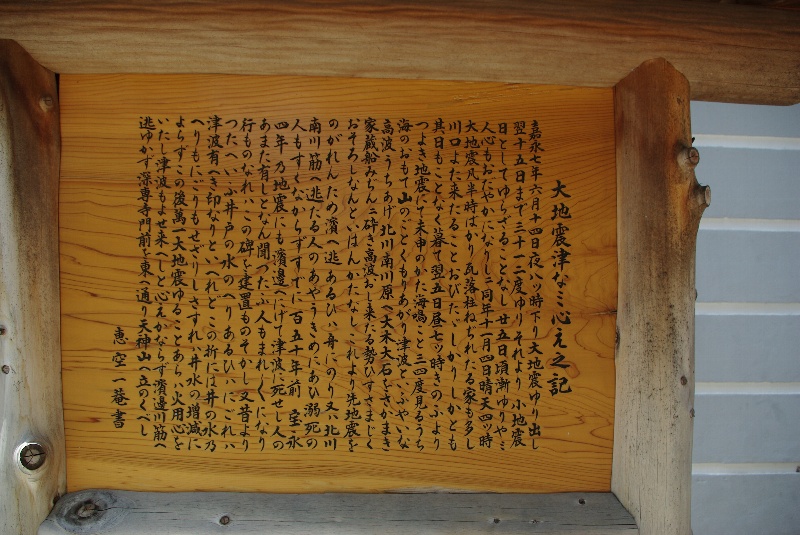 大地震津なミ心え之記
嘉永七年六月十四日夜八ッ時下り大地震ゆり出し
翌十五日まで三十一二度ゆりそれより小地震
日としてゆらざることなし廿五日頃漸ゆりやミ
人心もおだやかになりしニ同年十一月四日晴天四ッ時
大地震凡半時ばかり瓦落柱ねぢれたる家も多し
川口よた来たることおびたゝしかりしかとも
其日もことなく暮て翌五日昼七ッ時きのふより
つよき地震にて未申のかた海鳴こと三四度見るうち
海のおもて山のことくもりあがり津波といふやいな
高波うちあげ北川南川原へ大木大石をさかまき
家蔵船みぢんニ砕き高波おし来たる勢ひすさまじく
おそろしなんといはんかたなしこれより先地震を
のがれんため濱へ逃あるひハ舟にのり又ハ北川
南川筋へ逃たる人のあやうきめにあひ溺死の
人もすくなからずすでに百五十年前宝永
四年乃地震にも濱邊へにげて津波に死せし人の
あまた有しとなん聞つたふ人もまれ〳〵になり
行ものなれハこの碑を建置ものそかし又昔より
つたへいふ井戸の水のへりあるひハにごれハ
津波有へき印なりといへれどこの折には井の水乃
へりもにごりもせざりしさすれハ井水の増減に
よらずこの後萬一大地震ゆることあらハ火用心を
いたし津波もよせ来へしと心えかならず濱邊川筋へ
逃ゆかず深専寺門前を東へ通り天神山へ立のくべし
恵空一菴書